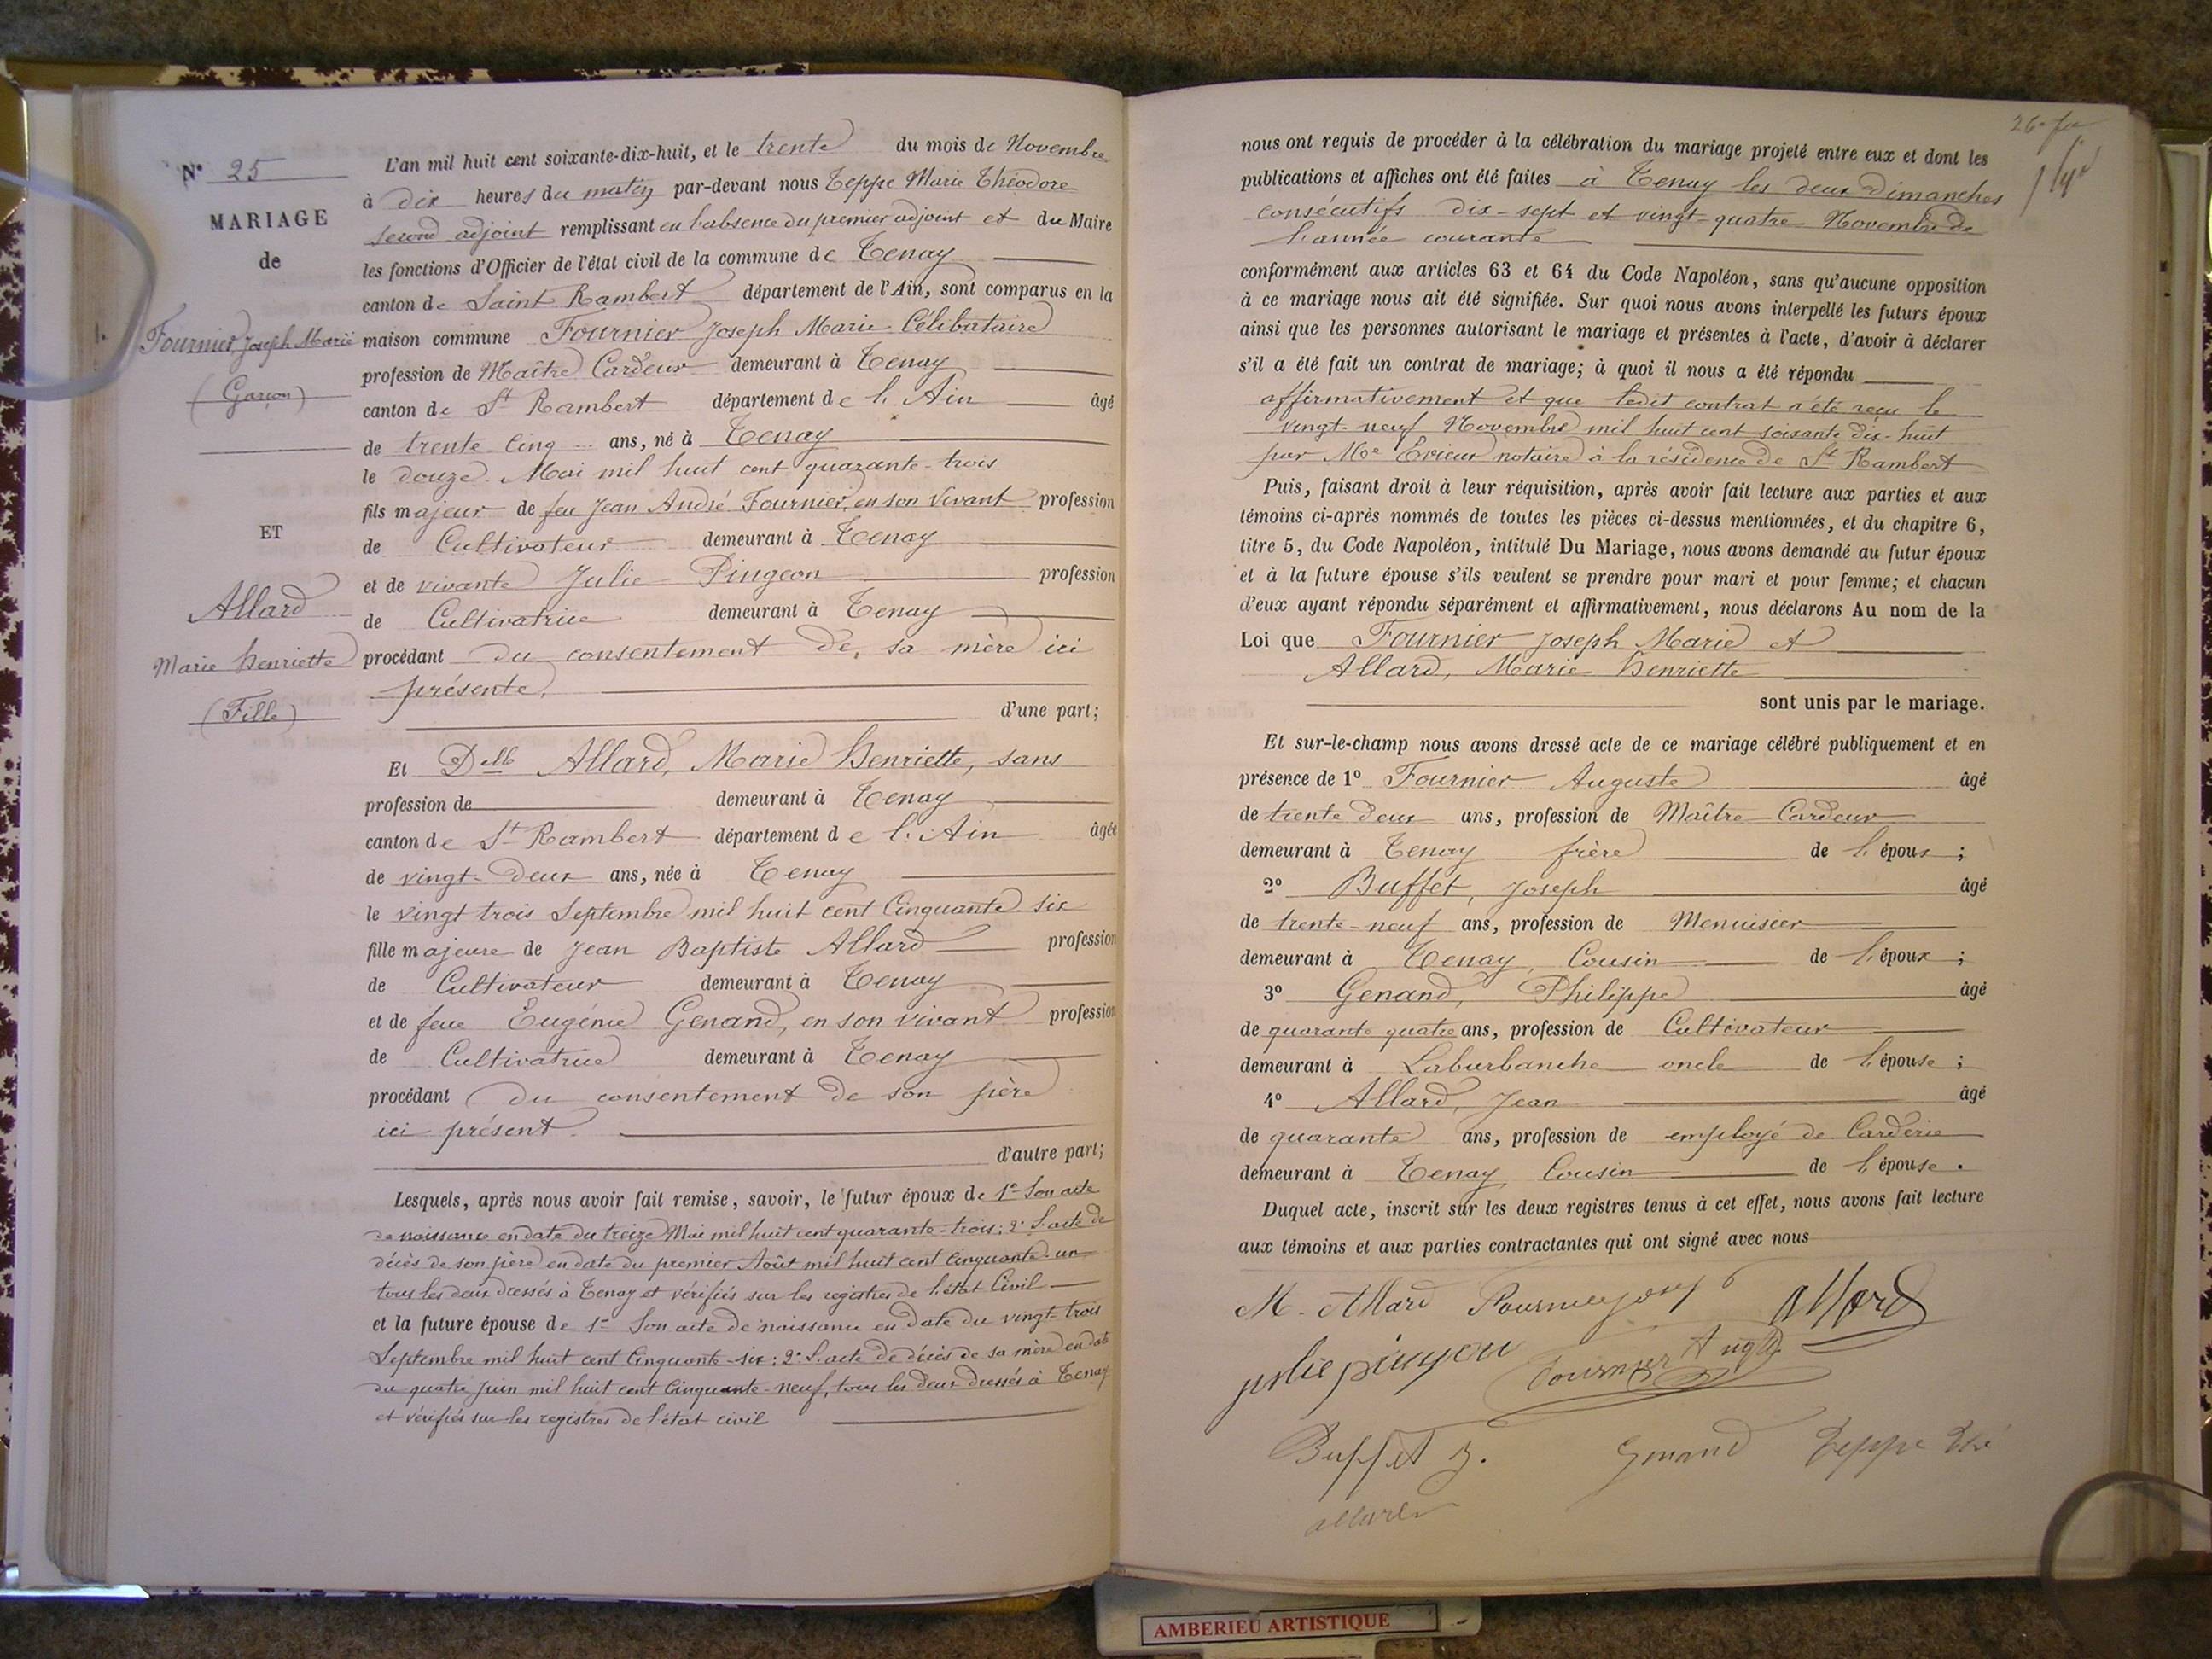 N° 25
MARIAGE
de
Fournier, Joseph Marie
(Garçon)
ET
Allard
Marie Henriette
(Fille)
L'an mil huit cent soixante-dix-huit, et le trente du mois de Novembre
à dix heures du matin par-devant nous Teppe Marie Théodore
second adjoint remplissant en l'absence du premier adjoint et du Maire
les fonctions d'Officier de l'état civil de la commune de Tenay
canton de Saint Rambert département de l'Ain, sont comparus en la
maison commune Fournier Joseph Marie Célibataire
profession de Maître Cardeur demeurant à Tenay
canton de St Rambert département de l'Ain âgé
de trente cinq ans, né à Tenay
le douze Mai mil huit cent quarante-trois
fils majeur de feu Jean André Fournier, en son vivant profession
de Cultivateur demeurant à Tenay
et de vivante Julie Pingeon profession
de Cultivatrice demeurant à Tenay
procédant du consentement de sa mère ici
présente,
d'une part;
Et Delle Allard, Marie Henriette, sans
profession de demeurant à Tenay
canton de St Rambert département de l'Ain âgée
de vingt-deux ans, née à Tenay
le vingt trois Septembre mil huit cent Cinquante-six
fille majeure de Jean Baptiste Allard profession
de Cultivateur demeurant à Tenay
et de feue Eugénie Genand, en son vivant profession
de Cultivatrice demeurant à Tenay
procédant du consentement de son père
ici présent.
d'autre part;
Lesquels, après nous avoir fait remise, savoir, le futur époux de 1° Son acte
de naissance en date du treize Mai mil huit cent quarante-trois; 2° L'acte de
décès de son père en date du premier Août mil huit cent Cinquante-un
tous les deux dressés à Tenay et vérifiés sur les registres de l'état Civil
et la future épouse de 1° Son acte de naissance en date du vingt-trois
Septembre mil huit cent Cinquante-six; 2° L'acte de décès de sa mère en date
du quatre Juin mil huit cent Cinquante-neuf, tous les deux dressés à Tenay
et vérifiés sur les registres de l'état civil
nous ont requis de procéder à la célébration du mariage projeté entre eux et dont les
publications et affiches ont été faites à Tenay les deux Dimanches
consécutifs dix-sept et vingt-quatre Novembre de
l'année courante
conformément aux articles 63 et 64 du Code Napoléon, sans qu'aucune opposition
à ce mariage nous ait été signifiée. Sur quoi nous avons interpellé les futurs époux
ainsi que les personnes autorisant le mariage et présentes à l'acte, d'avoir à déclarer
s'il a été fait un contrat de mariage; à quoi il nous a été répondu
affirmativement et que ledit contrat a été reçu le
vingt-neuf Novembre mil huit cent soixante dix-huit
par Me notaire à la résidence de St Rambert
Puis, faisant droit à leur réquisition, après avoir fait lecture aux parties et aux
témoins ci-après nommés de toutes les pièces ci-dessus mentionnées, et du chapitre 6,
titre 5, du Code Napoléon, intitulé Du Mariage, nous avons demandé au futur époux
et à la future épouse s'ils veulent se prendre pour mari et pour femme; et chacun
d'eux ayant répondu séparément et affirmativement, nous déclarons Au nom de la
Loi que Fournier Joseph Marie et
Allard, Marie Henriette
sont unis par le mariage.
Et sur-le-champ nous avons dressé acte de ce mariage célébré publiquement et en
présence de 1° Fournier Auguste âgé
de trente deux ans, profession de Maître Cardeur
demeurant à Tenay frère de l'époux;
2° Buffet, Joseph âgé
de trente-neuf ans, profession de Menuisier
demeurant à Tenay, Cousin de l'époux;
3° Genand, Philippe âgé
de quarante quatre ans, profession de Cultivateur
demeurant à Laburbanche oncle de l'épouse;
4° Allard, Jean âgé
de quarante ans, profession de employé de Carderie
demeurant à Tenay Cousin de l'épouse.
Duquel acte, inscrit sur les deux registres tenus à cet effet, nous avons fait lecture
aux témoins et aux parties contractantes qui ont signé avec nous
M. Allard Allard
julie pingeon Fournier
Buffet J. Genand Teppe Thé
AMBERIEU ARTISTIQUE